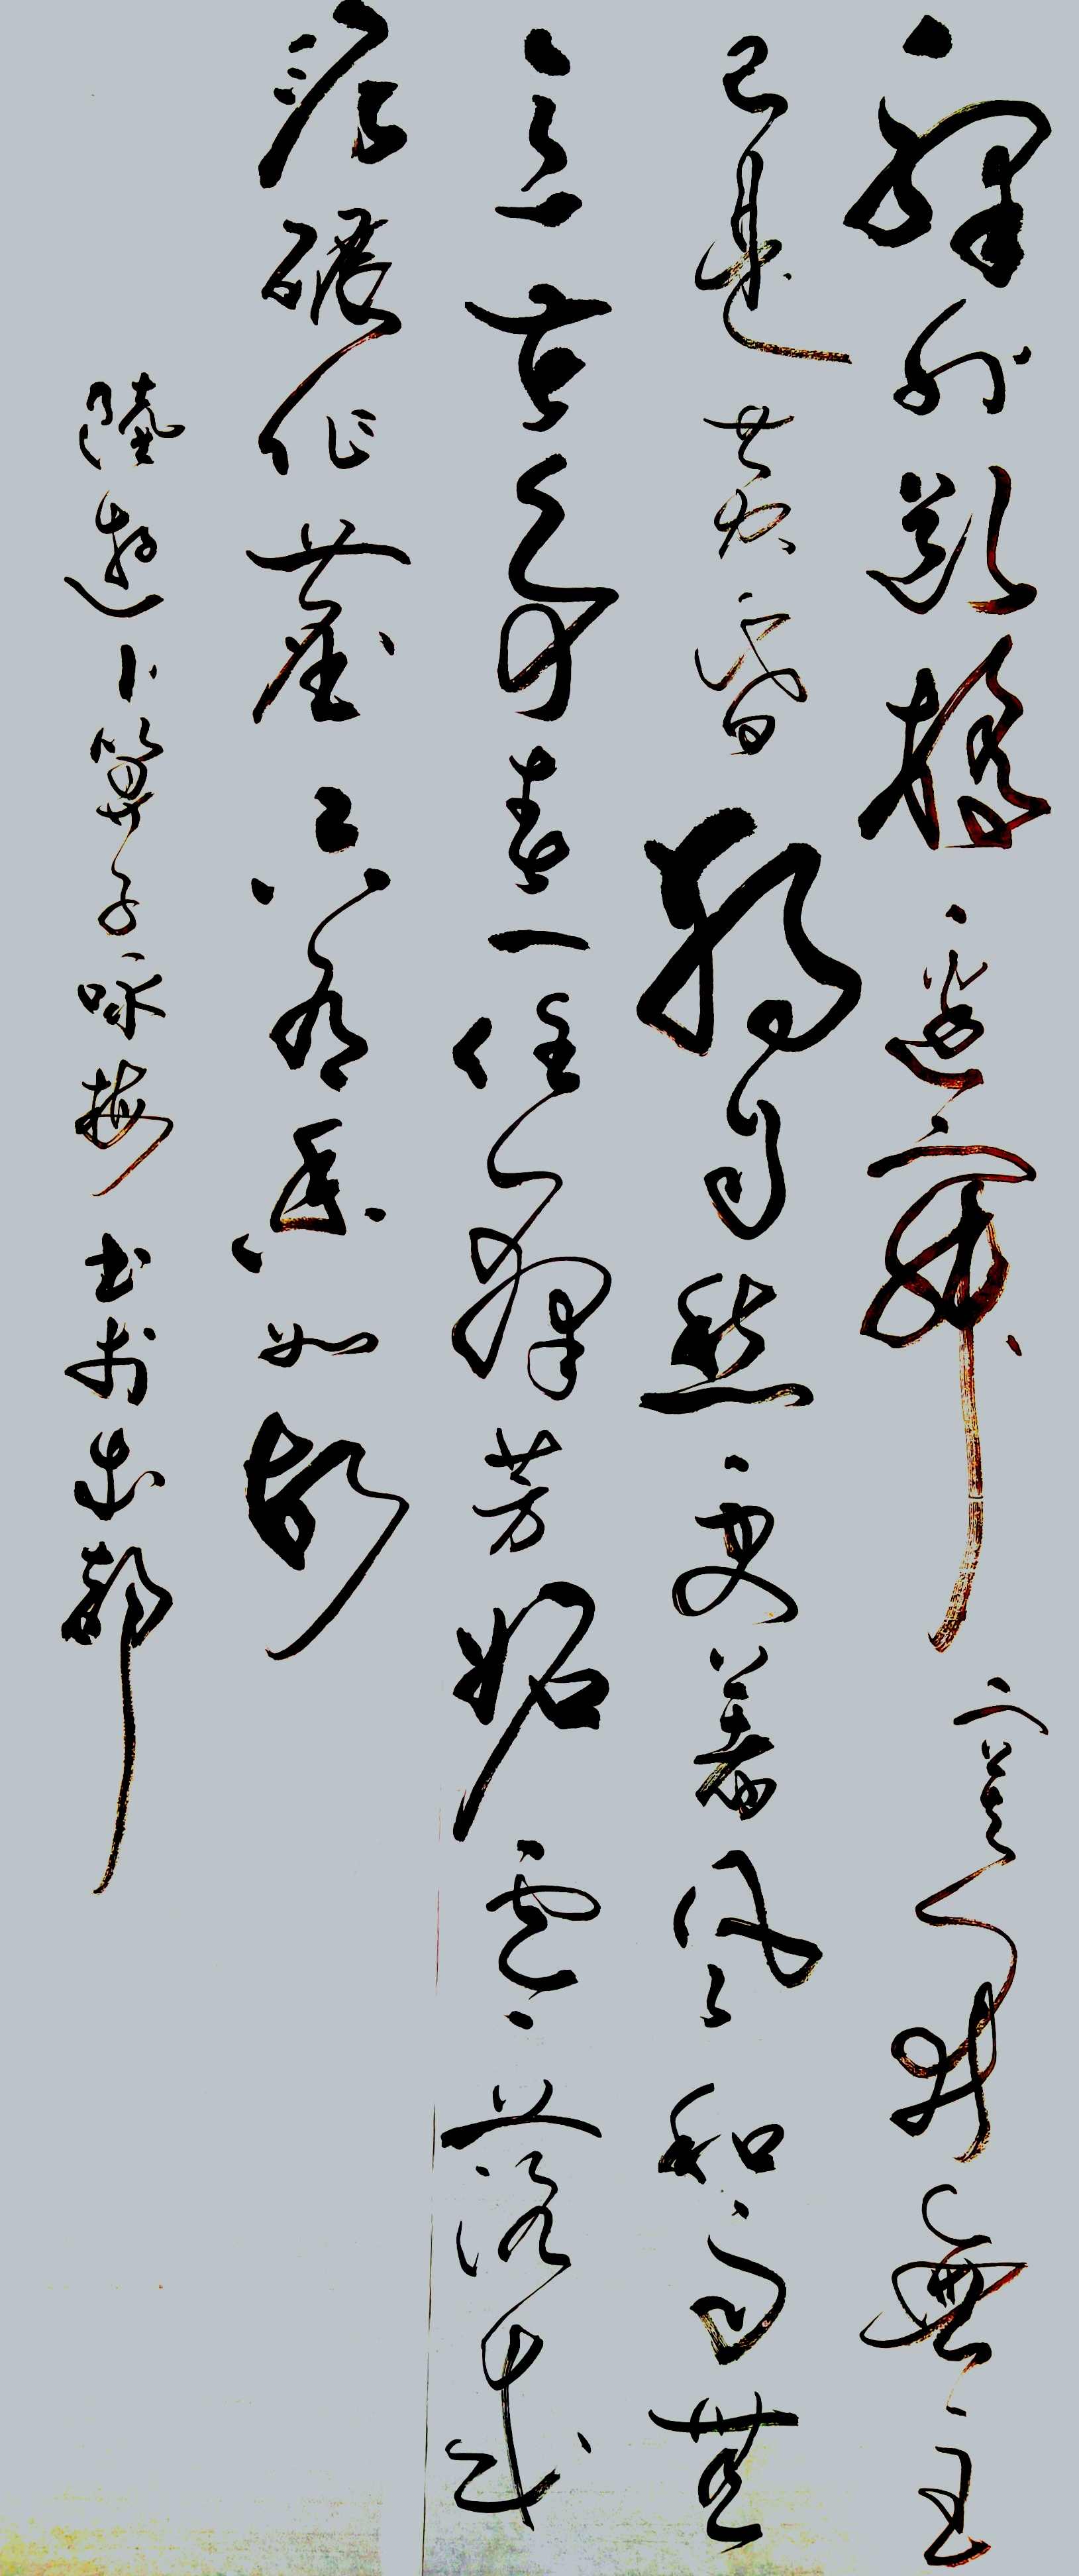 驛外斷橋邊寂寞開無主
已是黄昏獨自愁更著風和雨無
意苦爭春一任群芳妒零落成
泥碾作塵只有香如故
陸遊卜算子咏梅书於都